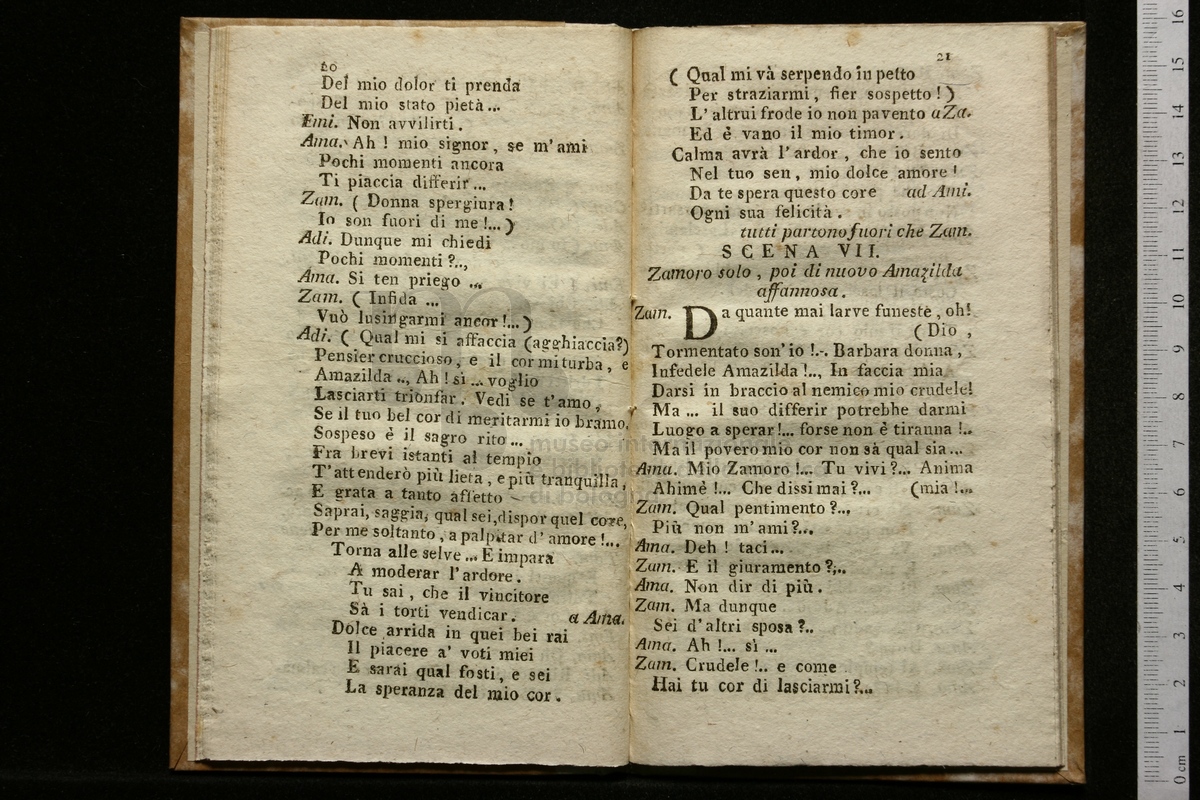 20
Del mio dolor ti prenda
Del mio stato pietà...
Emi. Non avvilirti.
Ama. Ah ! mio signor, se m'ami
Pochi momenti ancora
Ti piaccia differir ...
Zam. ( Donna spergiura!
Io son fuori di me !...)
Adi. Dunque mi chiedi
Pochi momenti ?..,
Ama. Si ten priego ...
Zam. ( Infida ...
Vuò lusingarmi ancor !...)
Adi. ( Qual mi si affaccia (agghiaccia?)
Pensier cruccioso, e il cor mi turba, e
Amazilda .., Ah ! sì ... voglio
Lasciarti trionfar. Vedi se t'amo,
Se il tuo bel cor di meritarmi io bramo.
Sospeso è il sagro rito ...
Fra brevi istanti al tempio
T'attenderò più lieta, e più tranquilla,
E grata a tanto affetto
Saprai, saggia, qual sei, dispor quel core,
Per me soltanto, a palpitar d'amore !...
Torna alle selve ... E impara
A moderar l'ardore.
Tu sai, che il vincitore
Sà i torti vendicar. a Ama.
Dolce arrida in quei bei rai
Il piacere a' voti miei
E sarai qual fosti, e sei
La speranza del mio cor.
21
( Qual mi và serpendo in petto
Per straziarmi, fier sospetto !)
L'altrui frode io non pavento a Za.
Ed è vano il mio timor.
Calma avrà l'ardor, che io sento
Nel tuo sen, mio dolce amore !
Da te spera questo core ad Ami.
Ogni sua felicità.
tutti partono fuori che Zam.
SCENA VII.
Zamoro solo, poi di nuovo Amazilda
affannosa.
Zam. Da quante mai larve funeste, oh!
(Dio ,
Tormentato son'io !.-. Barbara donna,
Infedele Amazilda !.., In faccia mia
Darsi in braccio al nemico mio crudele!
Ma ... il suo differir potrebbe darmi
Luogo a sperar!... forse non è tiranna !..
Ma il povero mio cor non sà qual sia ...
Ama. Mio Zamoro !... Tu vivi ?... Anima
Ahimè !... Che dissi mai ?... (mia !...
Zam. Qual pentimento ?...
Più non m'ami ?...
Ama. Deh ! taci ...
Zam. E il giuramento ?,..
Ama. Non dir di più.
Zam. Ma dunque
Sei d'altri sposa ?..
Ama. Ah !... sì ...
Zam. Crudele !.. e come
Hai tu cor di lasciarmi ?...
museo internazionale
e biblioteca
di bologna
0 cm 1 2 3 4 5 6 7 8 9 10 11 12 13 14 15 16